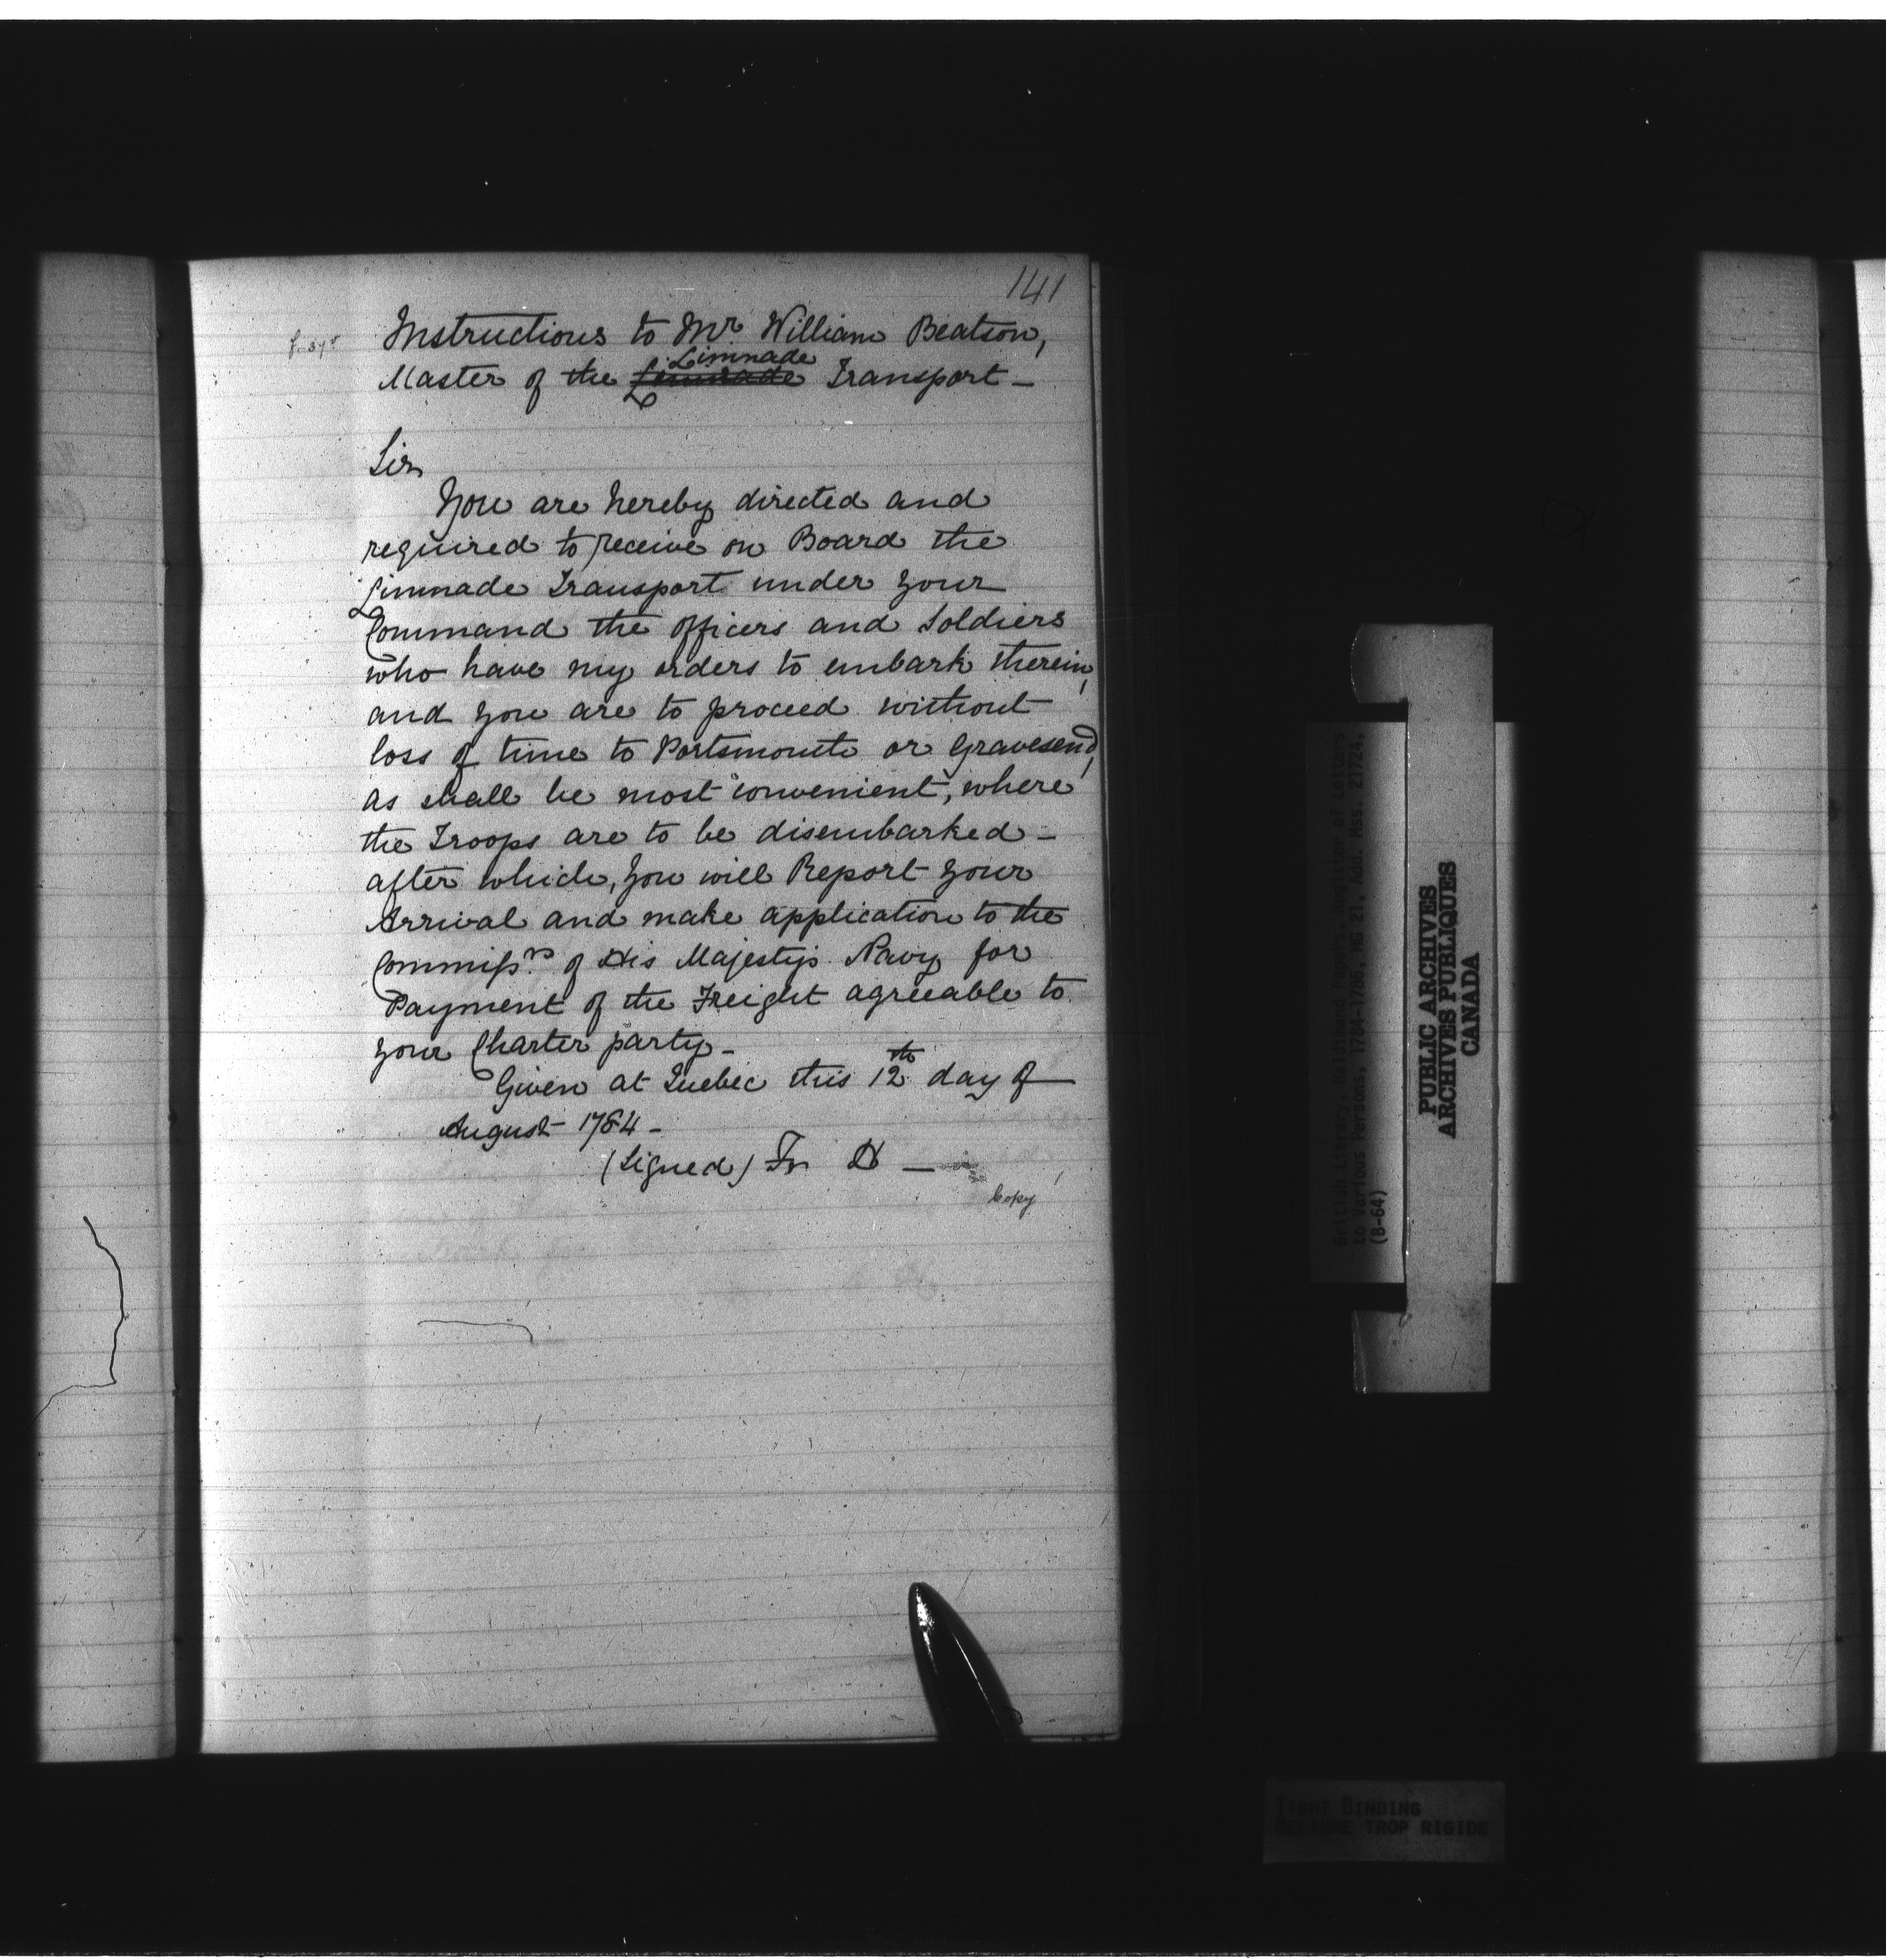 141
Instructions to Mr. William Beatson,
Limnade
Master of the Limnade Transport -
Sir
You are hereby directed and
required to receive on Board the
Limnade Transport under your
Command the officers and Soldiers
who have my orders to embark therein,
and you are to proceed without
loss of time to Portsmouth or Gravesend,
as shall be most convenient, where
the Troops are to be disembarked -
after which, you will Report your
Arrival and make application to the
Commissrs. of His Majesty's Navy for
Payment of the Freight agreeable to
your Charter party -
Given at Quebec this 12th day of
August 1784 -
(Signed) Fr H -
Copy
British Library, Haldimand Papers, Register of Letters
to Various Persons, 1784-1786, MG 21, Add. Mss. 21724,
(B-64)
PUBLIC ARCHIVES
ARCHIVES PUBLIQUES
CANADA
TIGHT BINDING
RELIURE TROP RIGIDE